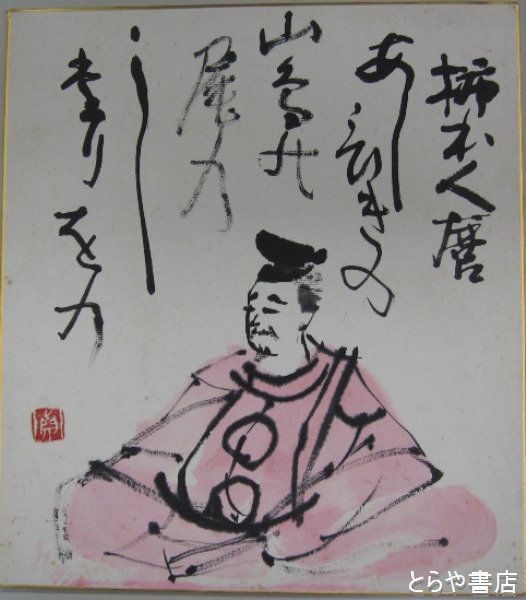 柿本人麿
あしひきの
山鳥の
尾の
し
堂りをの
とらや書店